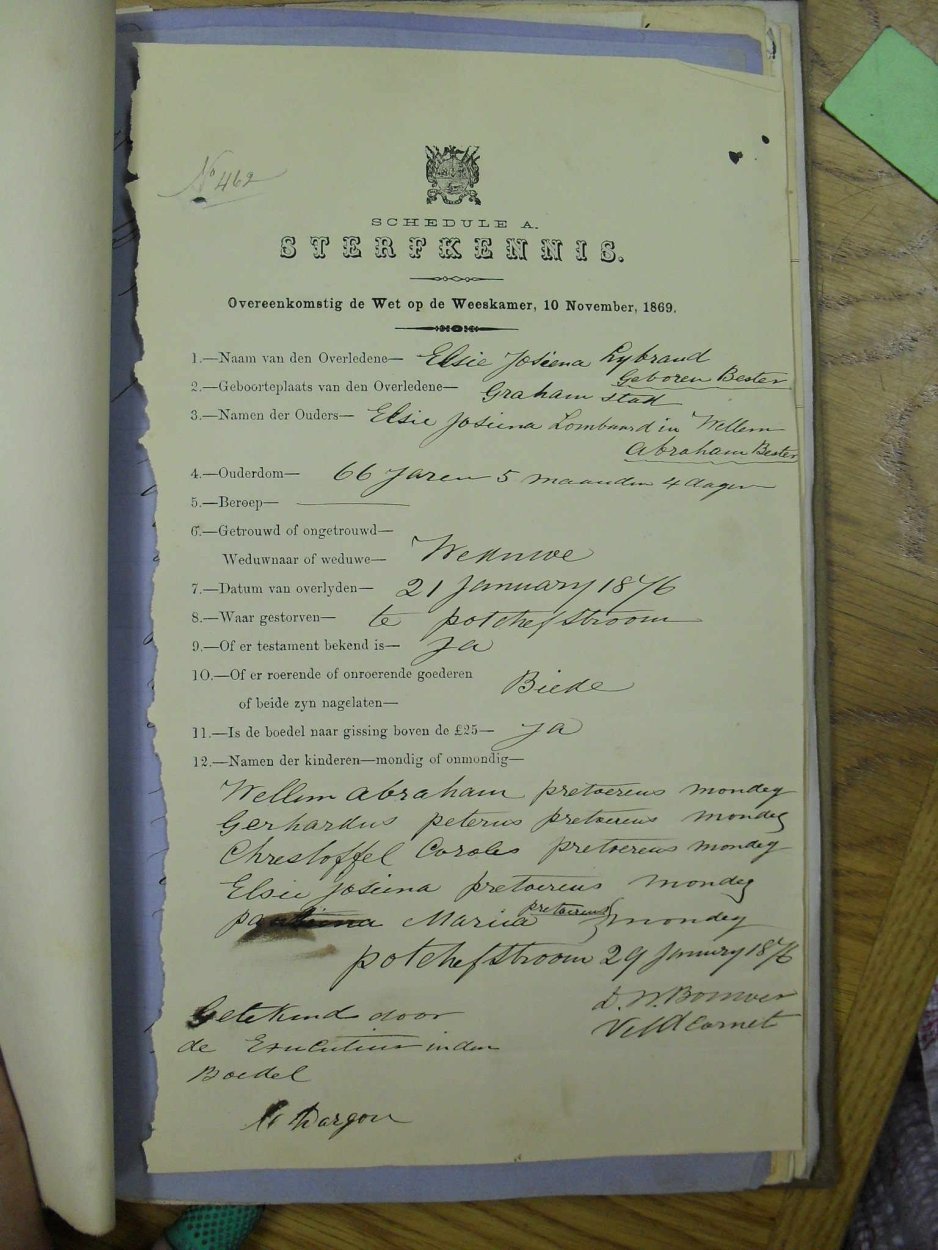 No 462
SCHEDULE A.
STERFKENNIS.
Overeenkomstig de Wet op de Weeskamer, 10 November, 1869.
1.—Naam van den Overledene— Elsie Josiena Lybrand
Geboren Bester
2.—Geboorteplaats van den Overledene— Graham stad
3.—Namen der Ouders— Elsie Josiena Lombaard in Wellem
Abraham Bester
4.—Ouderdom— 66 Jaren 5 maanden 4 dagen
5.—Beroep—
6.—Getrouwd of ongetrouwd—
Weduwnaar of weduwe— Weduwe
7.—Datum van overlyden— 21 January 1876
8.—Waar gestorven— te potchefstroom
9.—Of er testament bekend is— Ja
10.—Of er roerende of onroerende goederen
of beide zyn nagelaten— Biede
11.—Is de boedel naar gissing boven de £25— Ja
12.—Namen der kinderen—mondig of onmondig—
Wellem abraham pretoreus mondeg
Gerhardus peterus pretoreus mondeg
Chrestoffel Coroles pretoreus mondeg
Elsie Josiena pretoreus mondeg
Maria pretoreus mondeg
potchefstroom 29 January 1876
D. W. Bouwer
Veld Cornet
Getekend door
de in den
Boedel